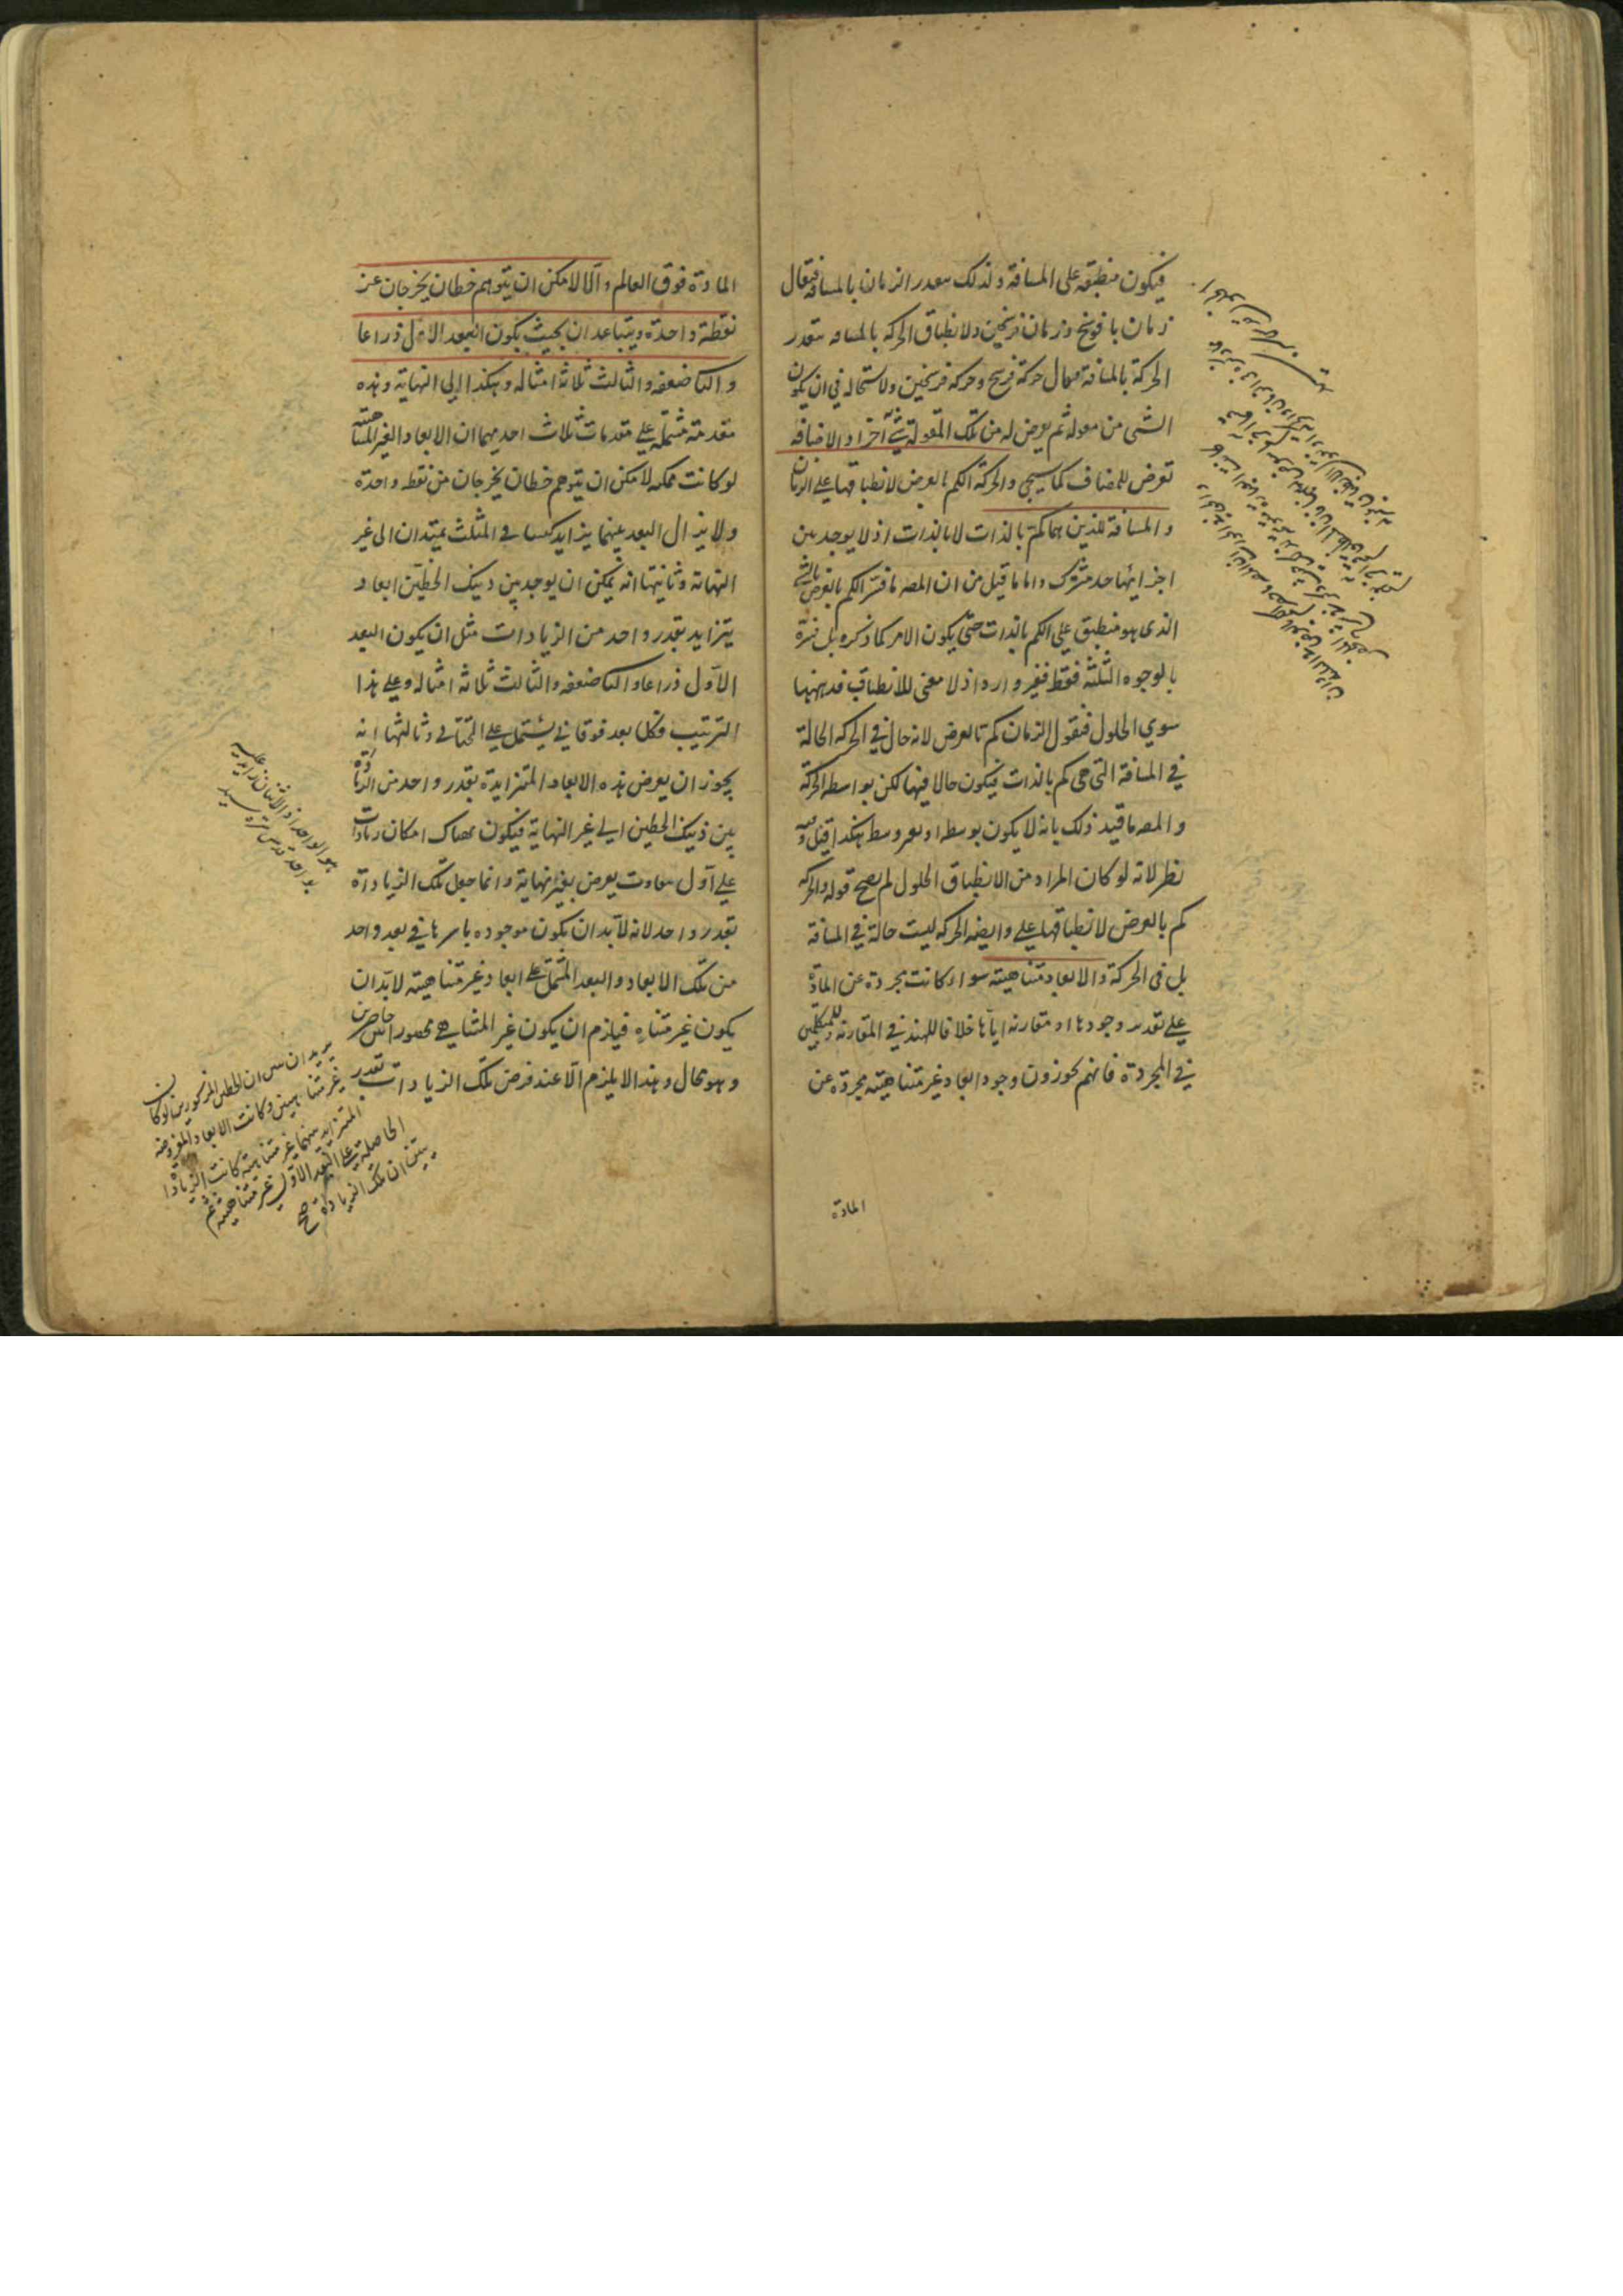 فيكون منطبقة على المسافة ولذلك يتقدر الزمان بالمسافة فيقال
زمان فرسخ وزمان فرسخين ولانطباق الحركة بالمسافه يتقدر
الحركة بالمسافة فيقال حركة فرسخ وحركة فرسخين ولا استحاله في ان يكون
الشئ من مقولة ثم يعرض له من تلك المقولة شئ آخر او الاضافه
تعرض للمضاف كما سيجئ والحركة الكم بالعرض لانطباقها على الزمان
والمسافة للذين هما كم بالذات لا بالذات اذ لا يوجد من
اجزائها حد مشترك واما ما قيل من ان المصه ما فسر الكم بالعرض بالشئ
الذى هو منطبق على الكم بالذات حتى يكون الامر كما ذكره بل فسره
بالوجوه الثلثة فقط فغير وارد اذ لا معنى للانطباق فد ههنا
سوي الحلول فنقول الزمان كم بالعرض لانه حال في الحركه الحالة
في المسافة التى هى كم بالذات فيكون حالا فيها لكن بواسطه الحركة
والمصه ما قيد ذلك بانه لا يكون بوسط او بغير وسط هكذا قيل وفيه
نظر لانه لو كان المراد من الانطباق الحلول لم يصح قوله والحركه
كم بالعرض لانطباقها على وايضه الحركه ليست حالة في المسافة
بل فى الحركة والابعاد متناهية سواء كانت مجردة عن المادة
على تقدير وجودها او مقارنه اياها خلافا للهند في المقارنة وللمتكلمين
في المجردة فانهم يجوزون وجود ابعاد غير متناهيته مجردة عن
المادة
المادة فوق العالم والا لامكن ان يتوهم خطان يخرجان عن
نقطة واحدة ويتباعدان بحيث يكون البعد الاول ذراعا
والثانى ضعفه والثالث ثلاثة امثاله وهكذا الى النهاية وهذه
مقدمة مشتملة على مقدمات ثلاث احديهما ان الابعاد الغير المتناهية
لو كانت ممكنه لامكن ان يتوهم خطان يخرجان من نقطه واحدة
ولا يزال البعد بينهما يتزايد كساقى المثلث يمتدان الى غير
النهاية وثانيتها انه يمكن ان يوجد بين ذينك الخطين ابعاد
يتزايد بقدر واحد من الزيادات مثل ان يكون البعد
الاول ذراعا والثانى ضعفه والثالث ثلاثة امثاله وعلى هذا
الترتيب فكل بعد فوقانى يشتمل على التحتانى وثالثها انه
يجوز ان يعرض هذه الابعاد المتزايدة بقدر واحد من الزيادة
بين ذينك الخطين الى غير النهاية فيكون هناك امكان زيادات
على اول تفاوت يعرض بغير نهاية وانما جعل تلك الزيادة
بقدر واحد لانه لا بد ان يكون موجوده باسرها في بعد واحد
من تلك الابعاد والبعد المشتمل على ابعاد غير متناهيته لا بد ان
يكون غير متناه فيلزم ان يكون غير المتناهى محصورا بين حاصرين
وهو محال وهذا لا يلزم الا عند فرض تلك الزيادات بقدر
يريد ان ان الخطين المذكورين لو كان
غير متناهيين وكانت الابعاد المفروضه
المتزايدة بينهما غير متناهية كانت الزيادا
الحاصلة على البعد الاول غير متناهية ثم
يبين ان تلك الزيادة صح